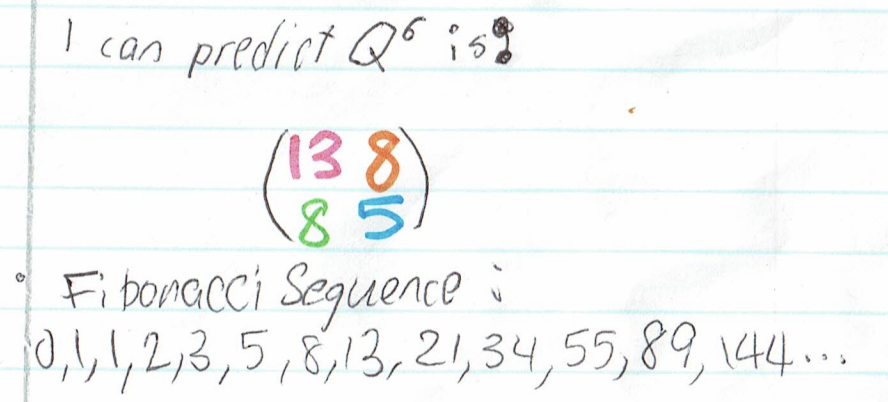 I can predict Q⁶ is:
(13 8
8 5)
• Fibonacci Sequence :
0,1,1,2,3,5,8,13,21,34,55,89,144...